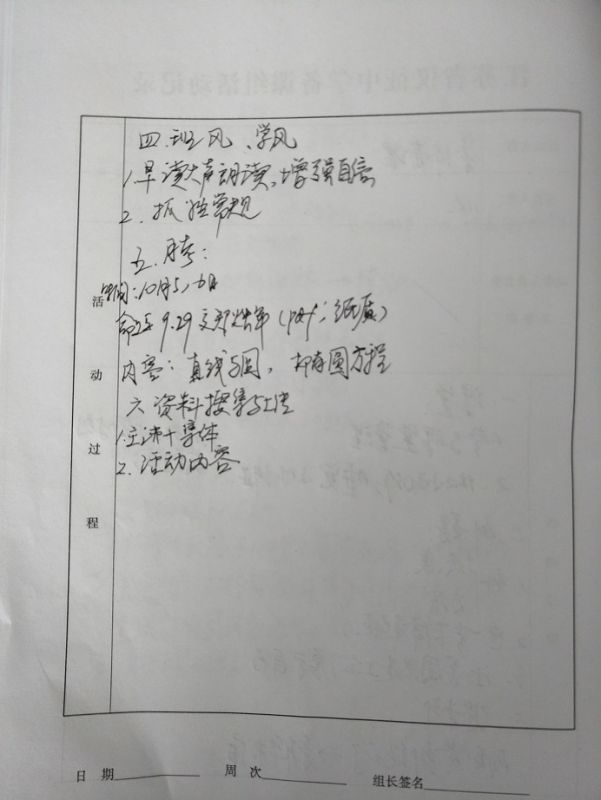 四、班风、学风
1.早读大声朗读,增强自信
2.抓好常规
五、月考:
时间:10月5、6日
命题 9.29 交 (pdf;纸质)
内容:直线与圆,椭圆方程
六 资料搜集与上传
1.主讲+导体
2.活动内容
活
动
过
程
日 期 周 次 组长签名